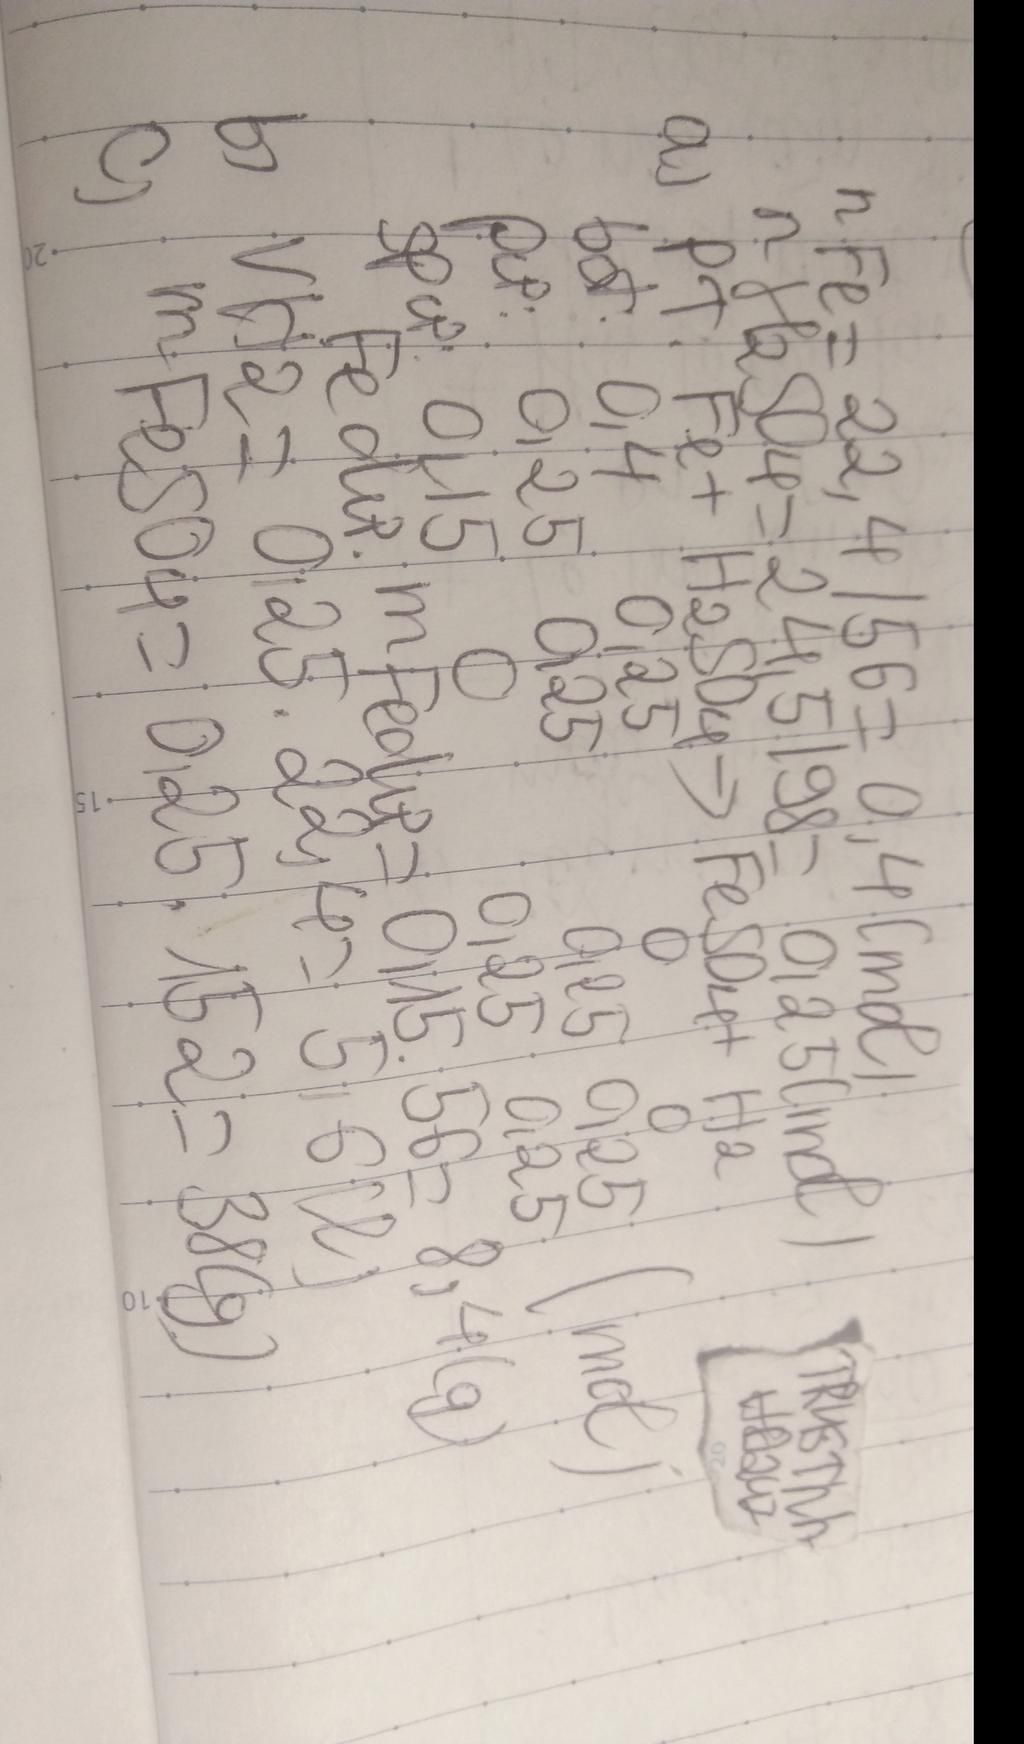 nFe = 22,4/56 = 0,4(mol)
nH2SO4 = 24,5/98 = 0,25(mol)
a) PT: Fe + H2SO4 → FeSO4 + H2
bđ: 0,4 0,25 0 0 (mol)
pư: 0,25 0,25 0,25 0,25
spư: 0,15 0 0,25 0,25
Fe dư. mFe dư = 0,15.56 = 8,4(g)
b) VH2 = 0,25.22,4 = 5,6(l)
c) mFeSO4 = 0,25.152 = 38(g)
20
15
10
20